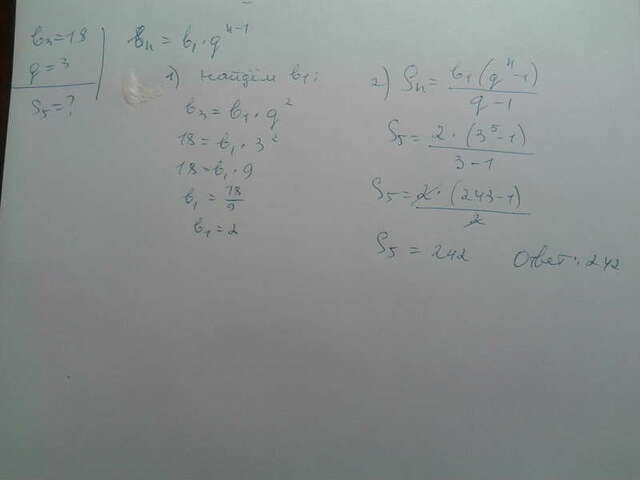 в₃=18
q=3
S₅=?
вₙ = в₁·qⁿ⁻¹
1) найдём в₁:
в₃=в₁·q²
18=в₁·3²
18=в₁·9
в₁=18/9
в₁=2
2) Sₙ= в₁(qⁿ-1)/q-1
S₅= 2·(3⁵-1)/3-1
S₅= 2·(243-1)/2
S₅=242
Ответ: 242